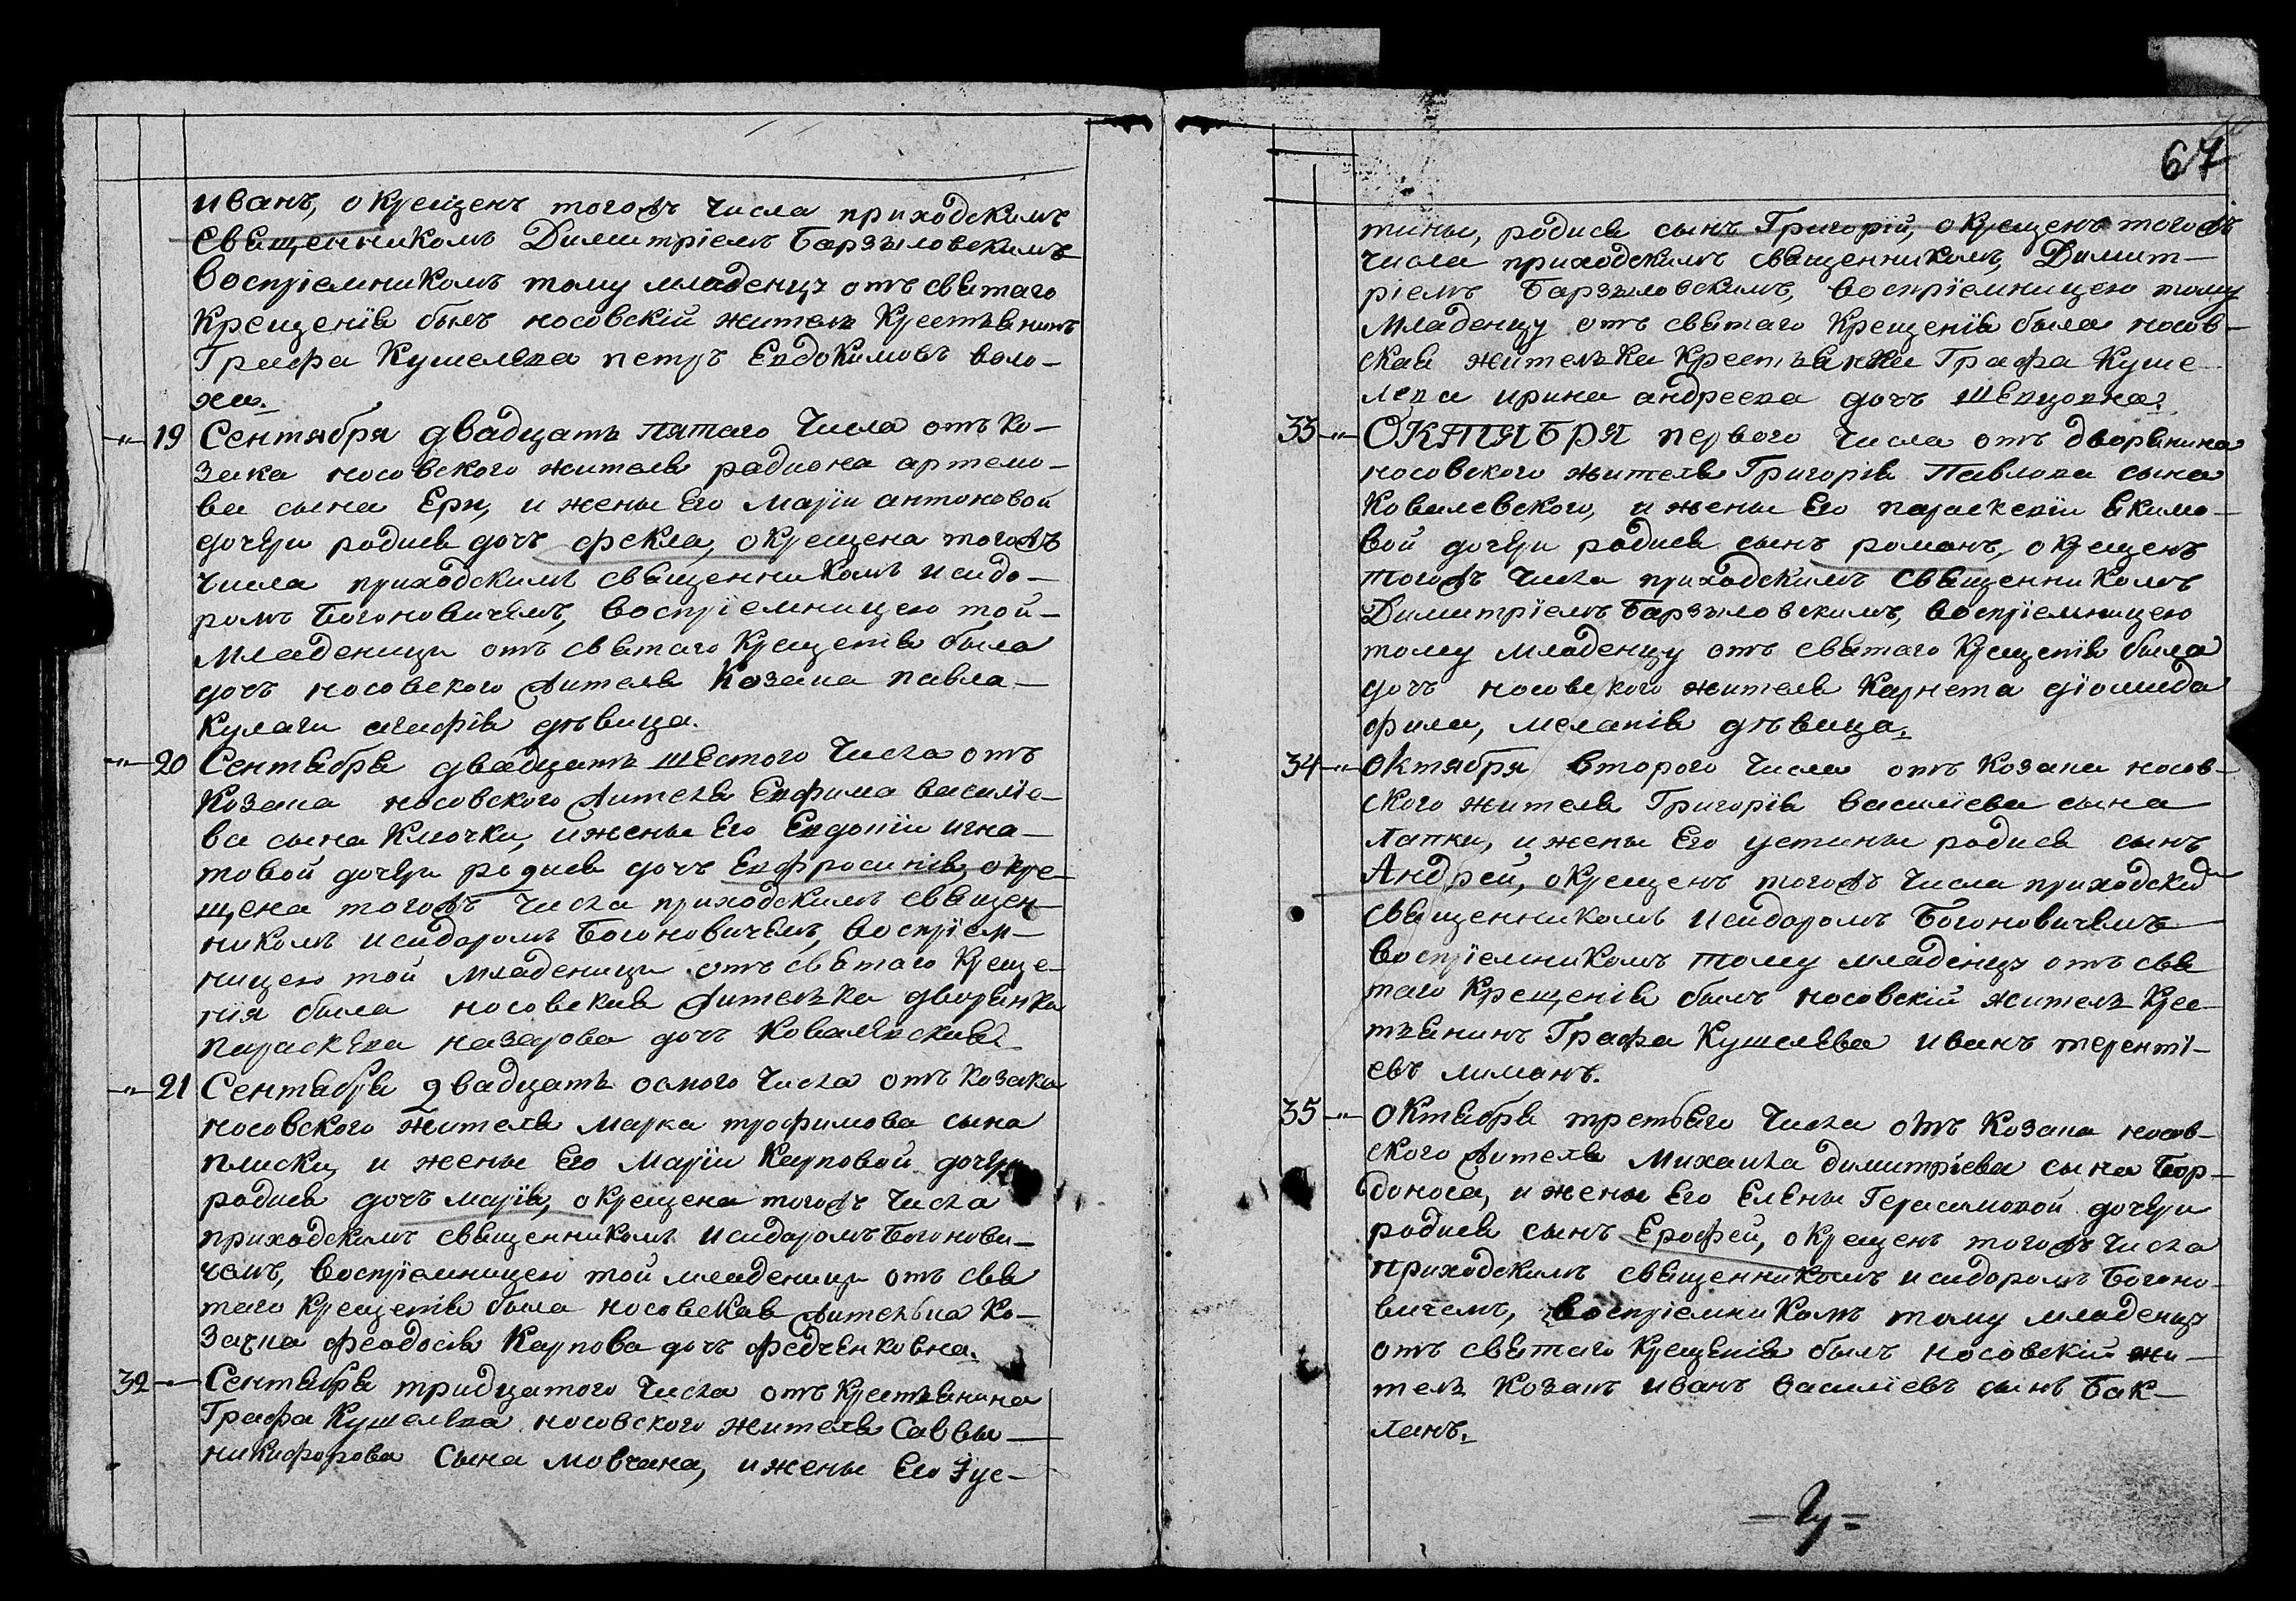 иванъ, окрещенъ тогожъ числа приходскимъ
священникомъ Димитріемъ Барзыловскимъ
воспріемникомъ тому младенцу отъ святаго
Крещенія былъ носовскій житель Крестьянинъ
Графа Кушелева петръ Евдокимовъ воло-
ха.
-"- 19 Сентября двадцать пятаго Числа отъ ко-
зака носовского жителя радиона артемо-
ва сына Ери, и жены Его Маріи антоновой
дочери родися дочъ фекла, окрещена тогожъ
числа приходскимъ священникомъ исидо-
ромъ Богоновичемъ, воспріемницею той-
Младеницы отъ святаго Крещенія была
дочъ носовского жителя Козака павла-
Кулаги агафія дѣвица.
-"- 20 Сентября двадцать шестого Числа отъ
Козака носовского жителя Евфима василіе-
ва сына Клочка, и жены Его Евдокіи игна-
товой дочери родися дочъ Евфросинія, окре-
щена тогожъ Числа приходскимъ священ-
никомъ исидоромъ Богоновичемъ, воспріем-
ницею той Младеницы отъ святаго Креще-
нія была носовская жителька дворянка
параскева назарова дочъ Ковалевская.
-"- 21 Сентября двадцать осмого Числа отъ козака
носовского жителя Марка трофимова сына
плиски, и жены Его Маріи Карповой дочери
родися дочъ марія, окрещена тогожъ Числа
приходскимъ священникомъ исидоромъ Богонови-
чемъ, воспріемницею той младеницы отъ свя
таго Крещенія была носовская жителька Ко-
зачка феодосія Карпова дочъ федченковна.
32 - Сентября тридцатого Числа отъ Крестьянина
Графа Кушелева носовского жителя Саввы-
никифорова Сына мовчана, и жены Его Іус-
67
тины, родися сынъ Григорій, окрещенъ тогожъ
числа приходскимъ священникомъ, Димит-
ріемъ Барзыловскимъ, воспріемницею тому
Младенцу отъ святаго Крещенія была носов-
ская жителька Крестьянка Графа Куше
лева ирина андреева дочъ шевцовна.
33 -"- ОКТЯБРЯ первого Числа отъ дворянина
носовского жителя Григорія Павлова сына
Ковалевского, и жены Его параскевіи Екимо-
вой дочери родися сынъ романъ, окрещенъ
тогожъ Числа приходскимъ священникомъ
Димитріемъ Барзыловскимъ, воспріемницею
тому младенцу отъ святаго Крещенія была
дочъ носовского жителя Карнета діомида
фили, мелапія дѣвица.
34 -"- Октября второго Числа отъ Козака носов-
ского жителя Григорія василіева сына
Лапки, и жены Его устины родися сынъ
Андрей, окрещенъ тогожъ Числа приходским
священникомъ исидоромъ Богоновичемъ
воспріемникомъ тому младенцу отъ свя
таго Крещенія былъ носовскій житель Крес-
тьянинъ Графа Кушелева иванъ теренті-
евъ лиманъ.
35 -"- Октября третьяго Числа отъ Козака носов-
ского жителя Михаила димитріева сына Бор-
доноса, и жены Его Елены Герасимовой дочери
родися сынъ Ерофей, окрещенъ тогожъ Числа
приходскимъ священникомъ исидоромъ Богоно-
вичемъ, воспріемникомъ тому младенцу
отъ святаго Крещенія былъ носовскій жи-
тель Козакъ иванъ василіевъ сынъ Бак-
ланъ.